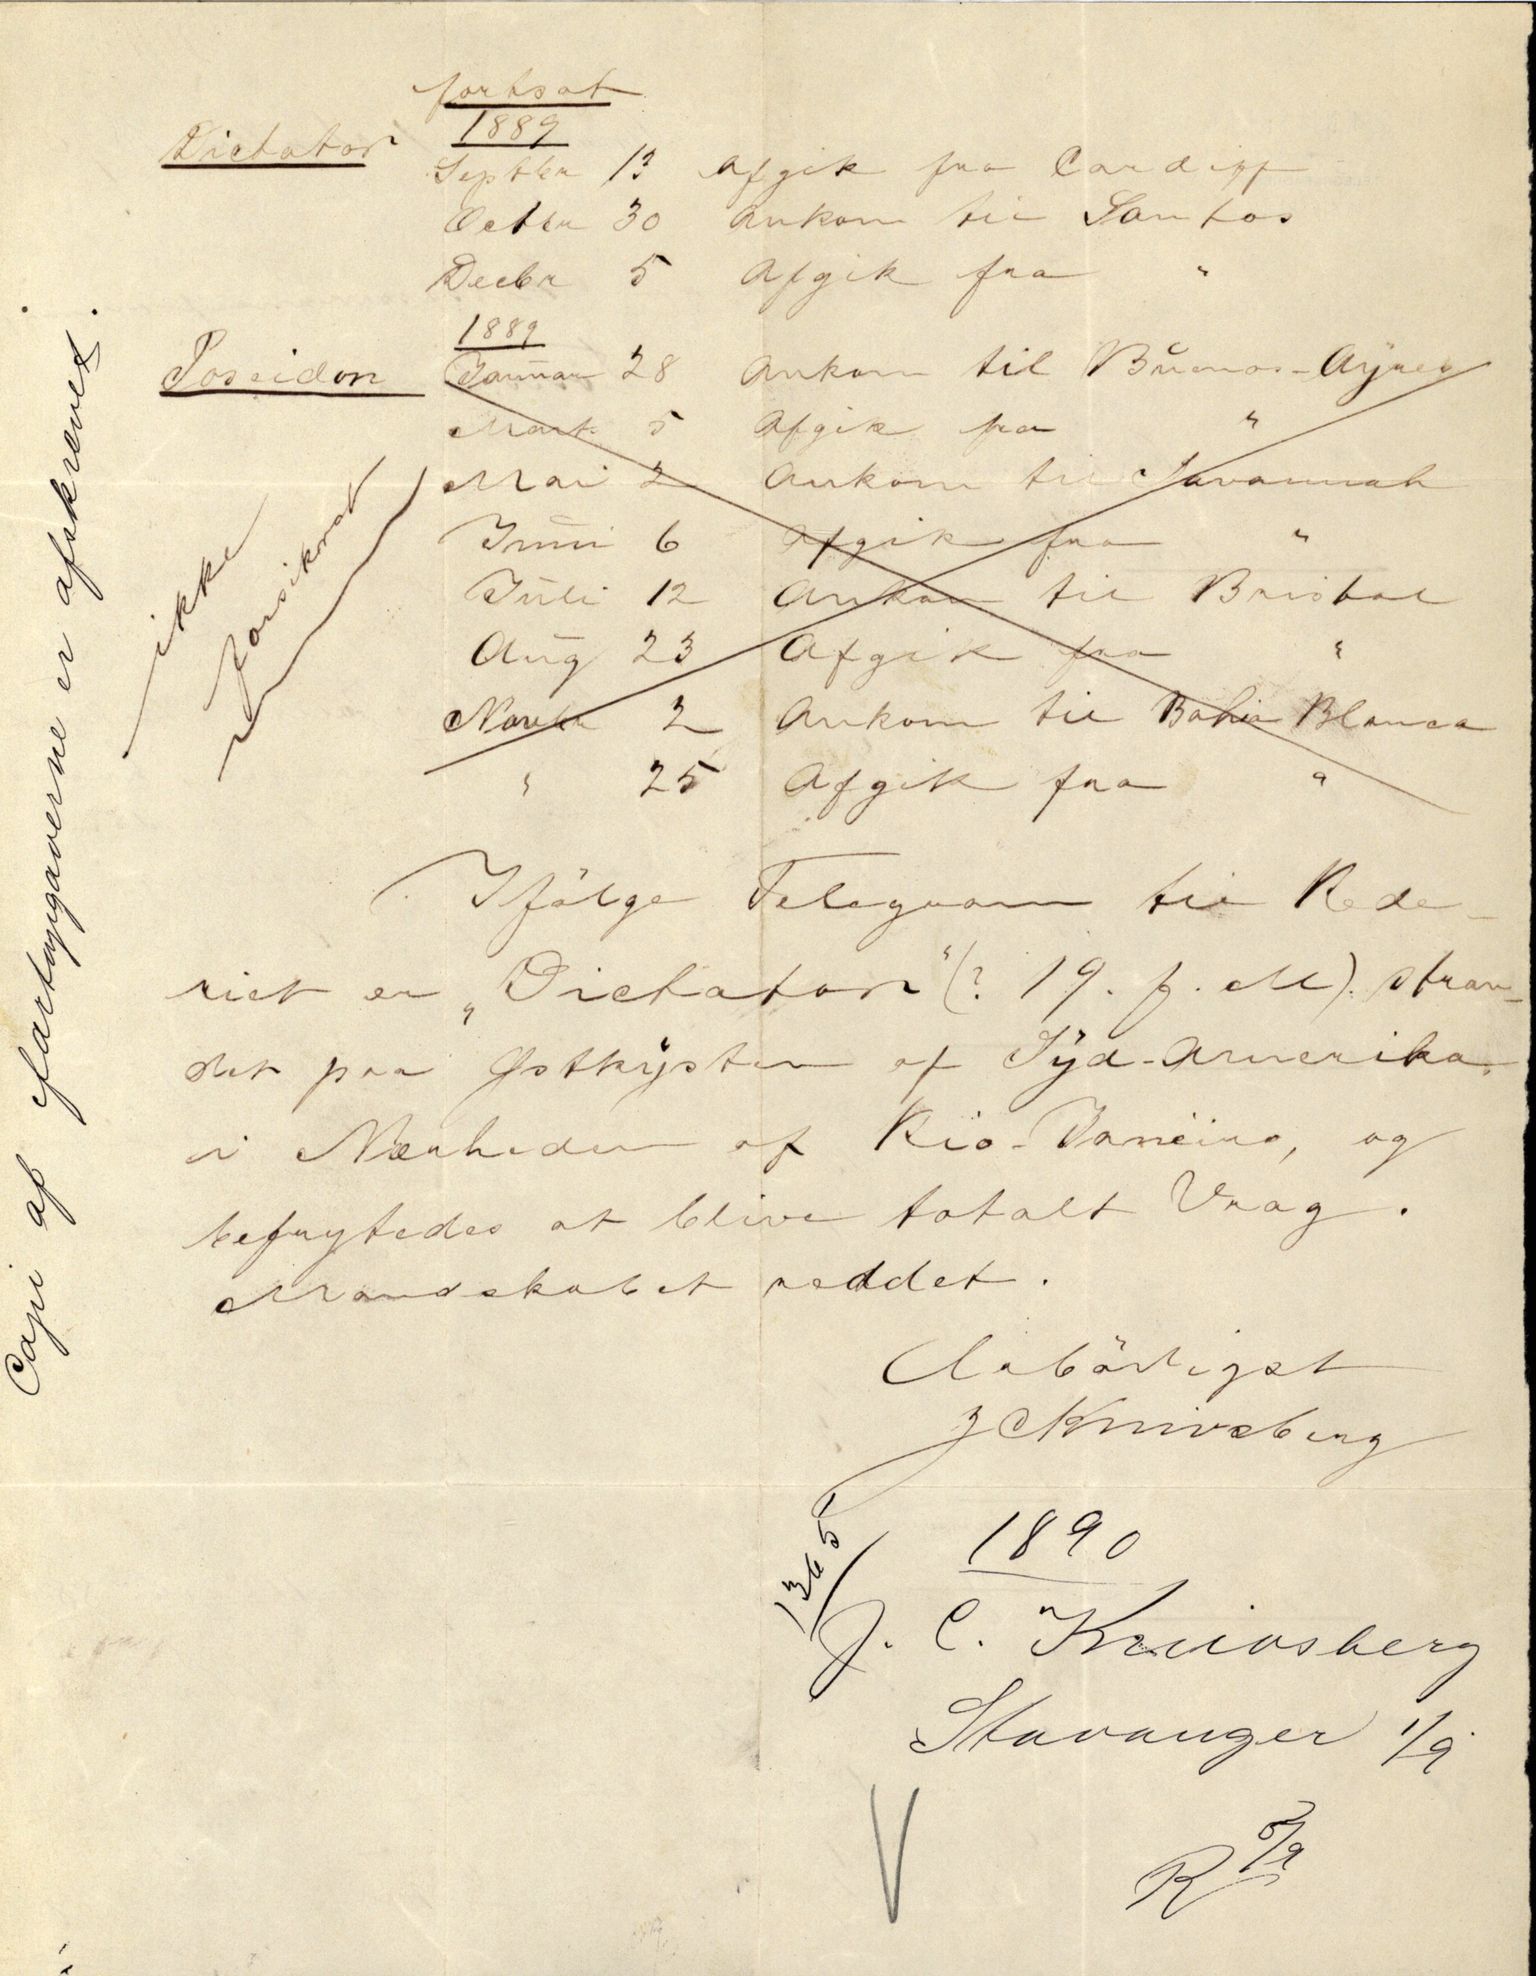 fortsat
1889
Dictator Septbr 13 Afgik fra Cardiff
Octbr 30 Ankom til Santos
Decbr 5 Afgik fra "
1889
Poseidon Januar 28 Ankom til Buenos-Ayres
Mart 5 Afgik fra "
Mai 2 Ankom til Savannah
Juni 6 Afgik fra "
Juli 12 Ankom til Bristol
Aug 23 Afgik fra "
Novbr 2 Ankom til Bahia Blanca
" 25 Afgik fra "
ikke
forsikret
Copi af fartøigaverne er afskrevet.
Ifölge Telegram til Rede-
riet er „Dictator" (? 19. f. M). stran-
det paa Østkysten af Syd-Amerika.
i Nærheden af Rio-Janeiro, og
befrygtedes at blive totalt Vrag.
Mandskabet reddet.
Ærbödigst
J C Knivsberg
1365
1890
J. C. Kneivsberg
Stavanger 1/9
R 5/9
V